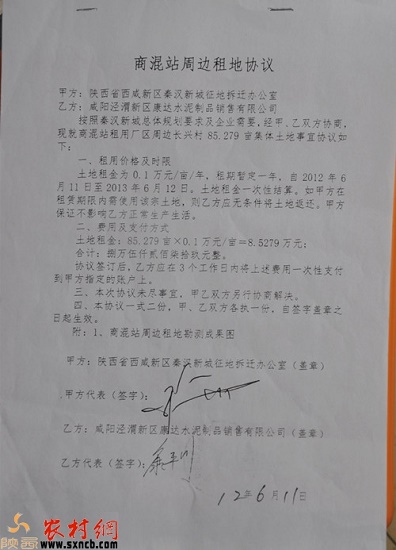 商混站周边租地协议
甲方：陕西省西咸新区秦汉新城征地拆迁办公室
乙方：咸阳泾渭新区康达水泥制品销售有限公司
按照秦汉新城总体规划要求及企业需要，经甲、乙双方协商，
现就商混站租用厂区周边长兴村85.279亩集体土地事宜协议如
下：
一、租用价格及时限
土地租金为0.1万元/亩/年，租期暂定一年，自2012年6
月11日至2013年6月12日。土地租金一次性结算。如甲方在
租赁期限内需使用该宗土地，则乙方应无条件将土地返还。甲方
保证不影响乙方正常生产生活。
二、费用及支付方式
土地租金：85.279亩×0.1万元/亩＝8.5279万元；
合计：捌万伍仟贰佰柒拾玖元整。
协议签订后，乙方应在3个工作日内将上述费用一次性支付
到甲方指定的账户上。
三、本次协议未尽事宜，甲乙双方另行协商解决。
四、本协议一式二份，甲、乙双方各执一份，自签字盖章之
日起生效。
附：1、商混站周边租地勘测成果图
甲方：陕西省西咸新区秦汉新城征地拆迁办公室（盖章）
甲方代表（签字）：
乙方：咸阳泾渭新区康达水泥制品销售有限公司（盖章）
乙方代表（签字）：
12年6月11日
陕西
农村網
www.sxncb.com